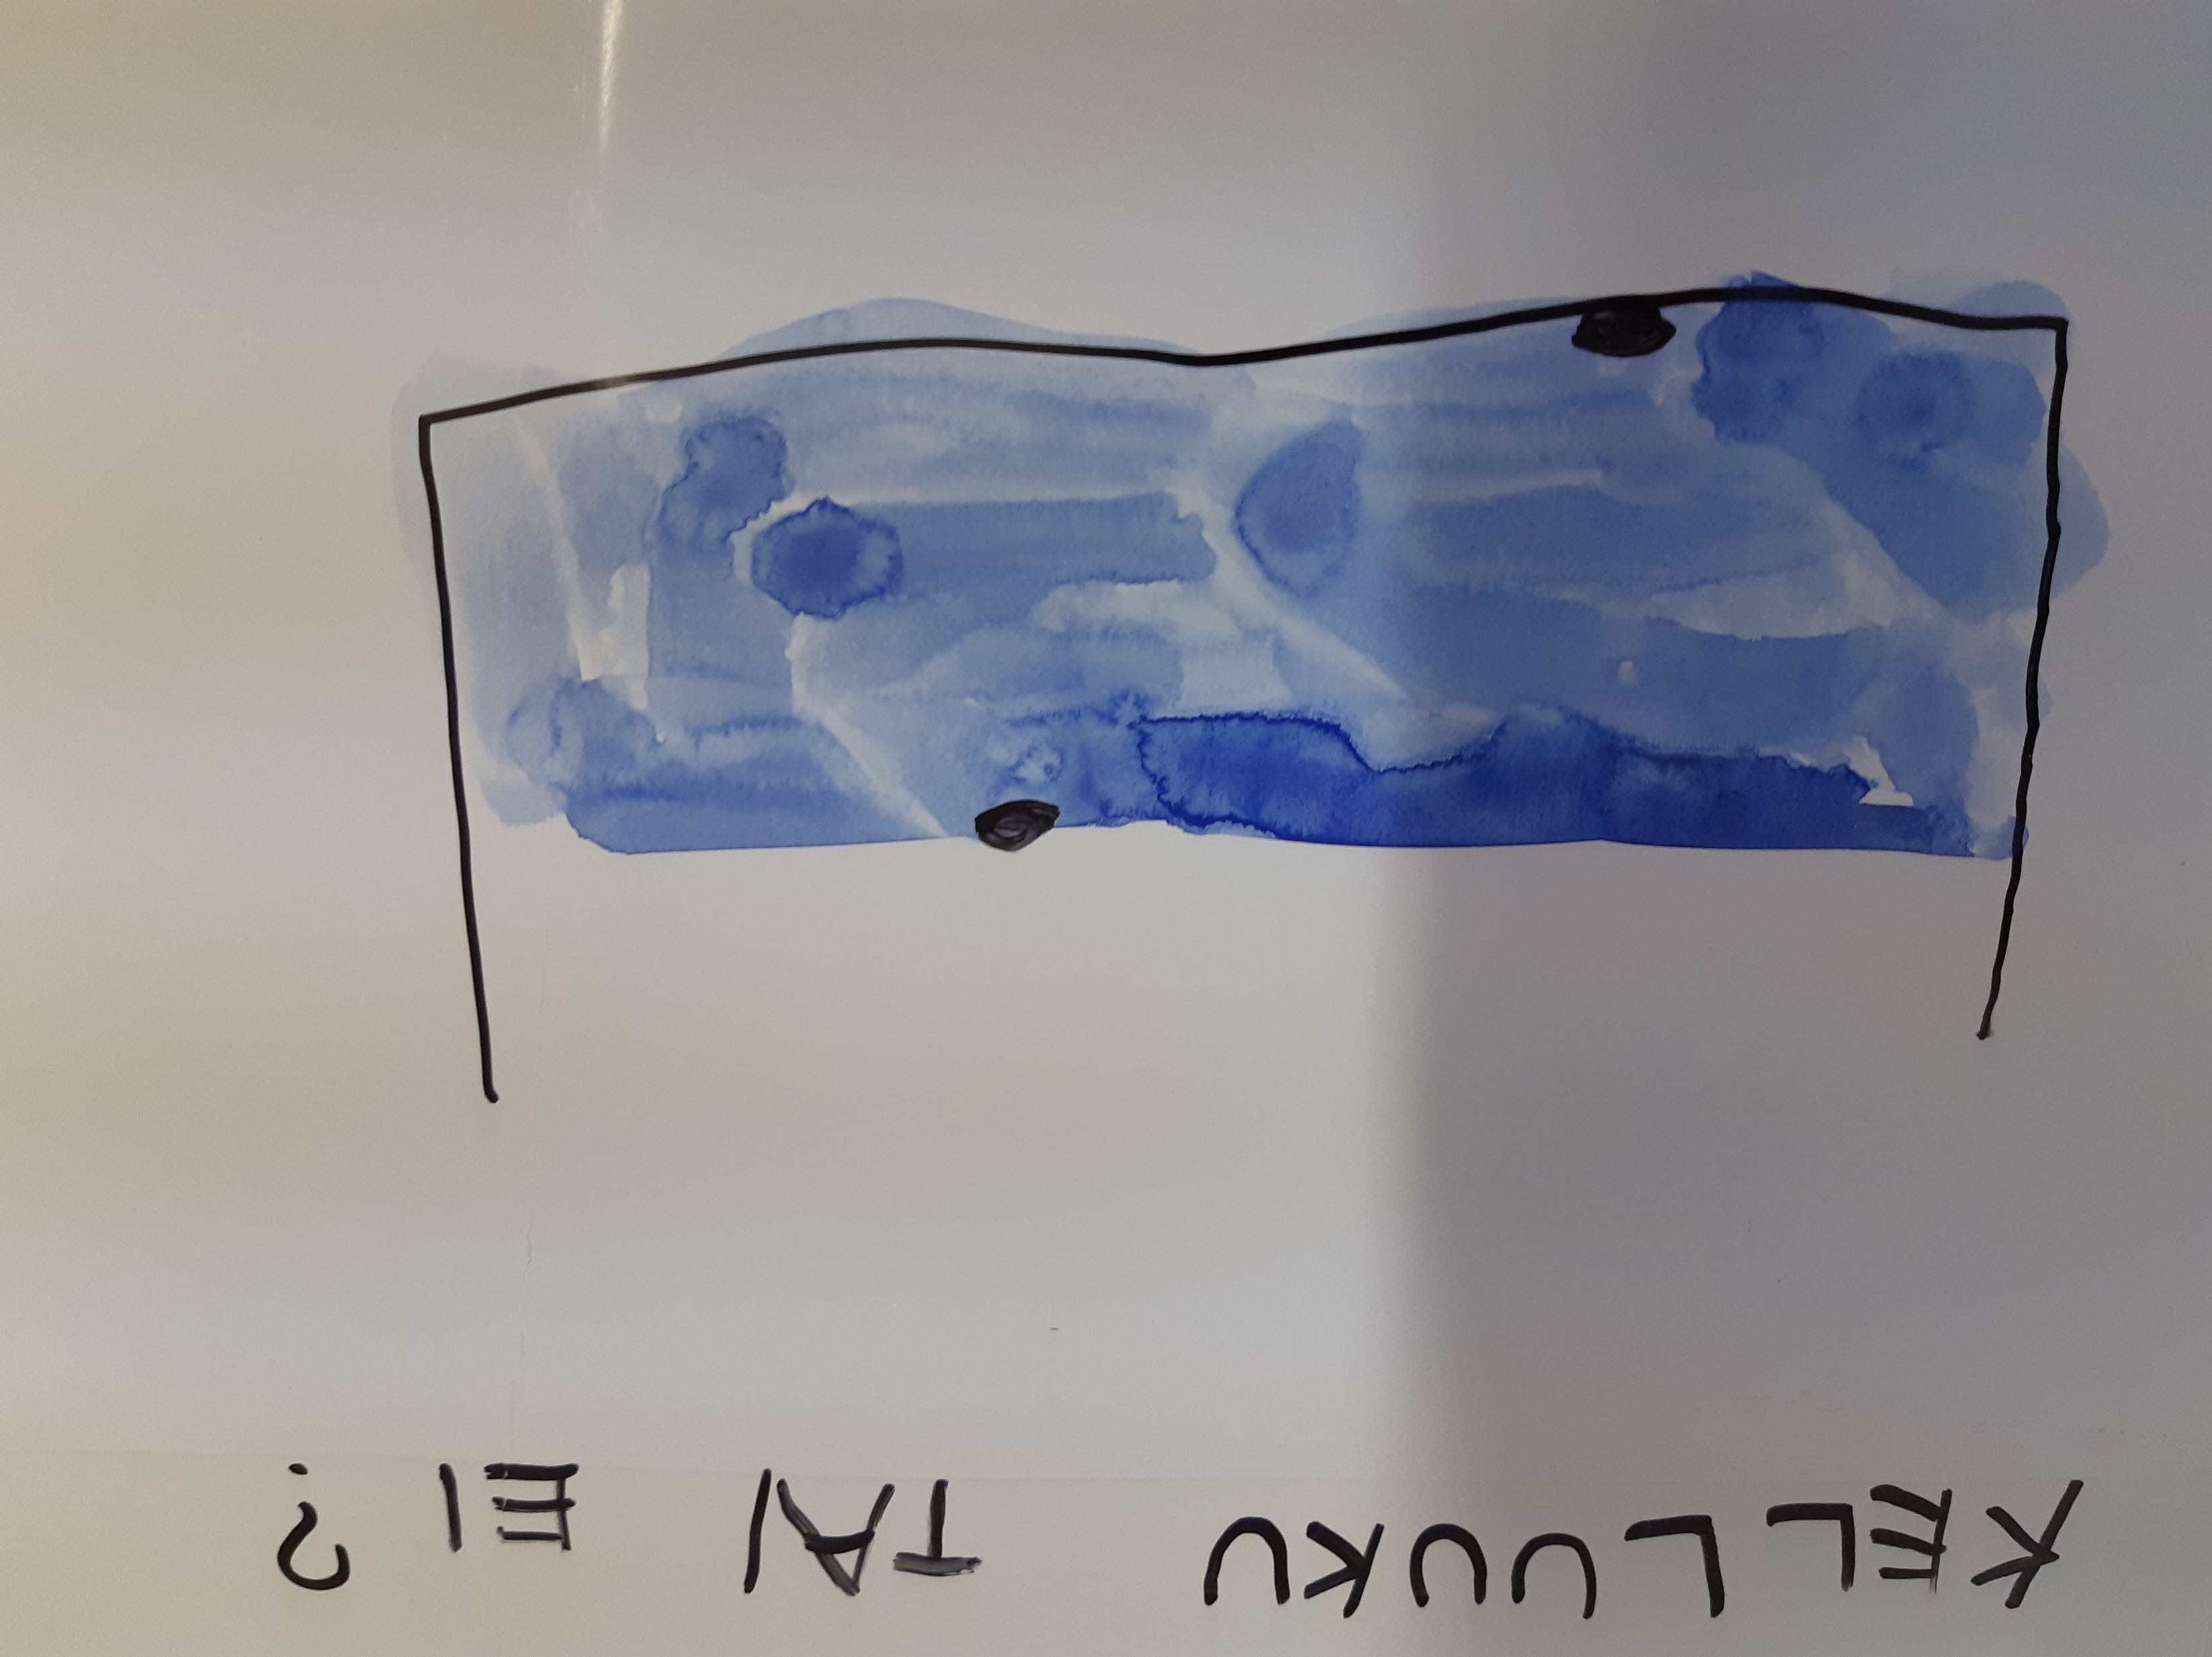 KELLUUKU TAI EI?